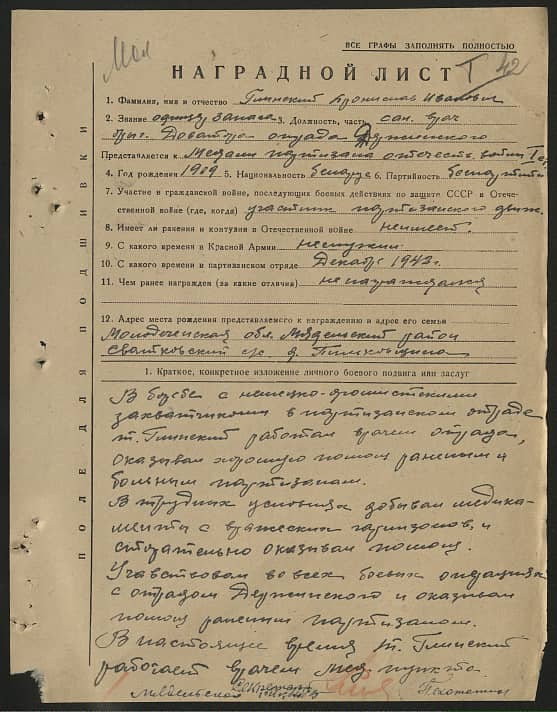 ВСЕ ГРАФЫ ЗАПОЛНЯТЬ ПОЛНОСТЬЮ
42
НАГРАДНОЙ ЛИСТ
1. Фамилия, имя и отчество Глинский Бронислав Иванович
2. Звание 3. Должность, часть сан. врач
отряда Дзержинского
Представляется к Медали партизана отечеств. войны
4. Год рождения 1909 5. Национальность беларус 6. Партийность
7. Участие в гражданской войне, последующих боевых действиях по защите СССР в Отече-
ственной войне (где, когда) участник партизанского движ.
8. Имеет ли ранения и контузии в Отечественной войне неимеет.
9. С какого времени в Красной Армии неслужил
10. С какого времени в партизанском отряде Декабрь 1942 г.
11. Чем ранее награжден (за какие отличия) ненаграждался
12. Адрес места рождения представляемого к награждению и адрес его семьи
Молодеченская обл. Мядельский район
Сватковский с/с. д.
1. Краткое, конкретное изложение личного боевого подвига или заслуг
В борьбе с немецко-фашистскими
захватчиками в партизанском отряде
т. Глинский работал врачем отряда,
оказывал хорошую помощь раненым и
больным партизанам.
В трудных условиях добывал медика-
менты с вражеских гарнизонов, и
старательно оказывал помощь.
Учавствовал во всех боевых операциях
с отрядом Дзержинского и оказывал
помощь раненым партизанам.
В настоящее время т. Глинский
работает врачем мед. пункта.
Секретарь
ПОЛЕ ДЛЯ ПОДШИВКИ